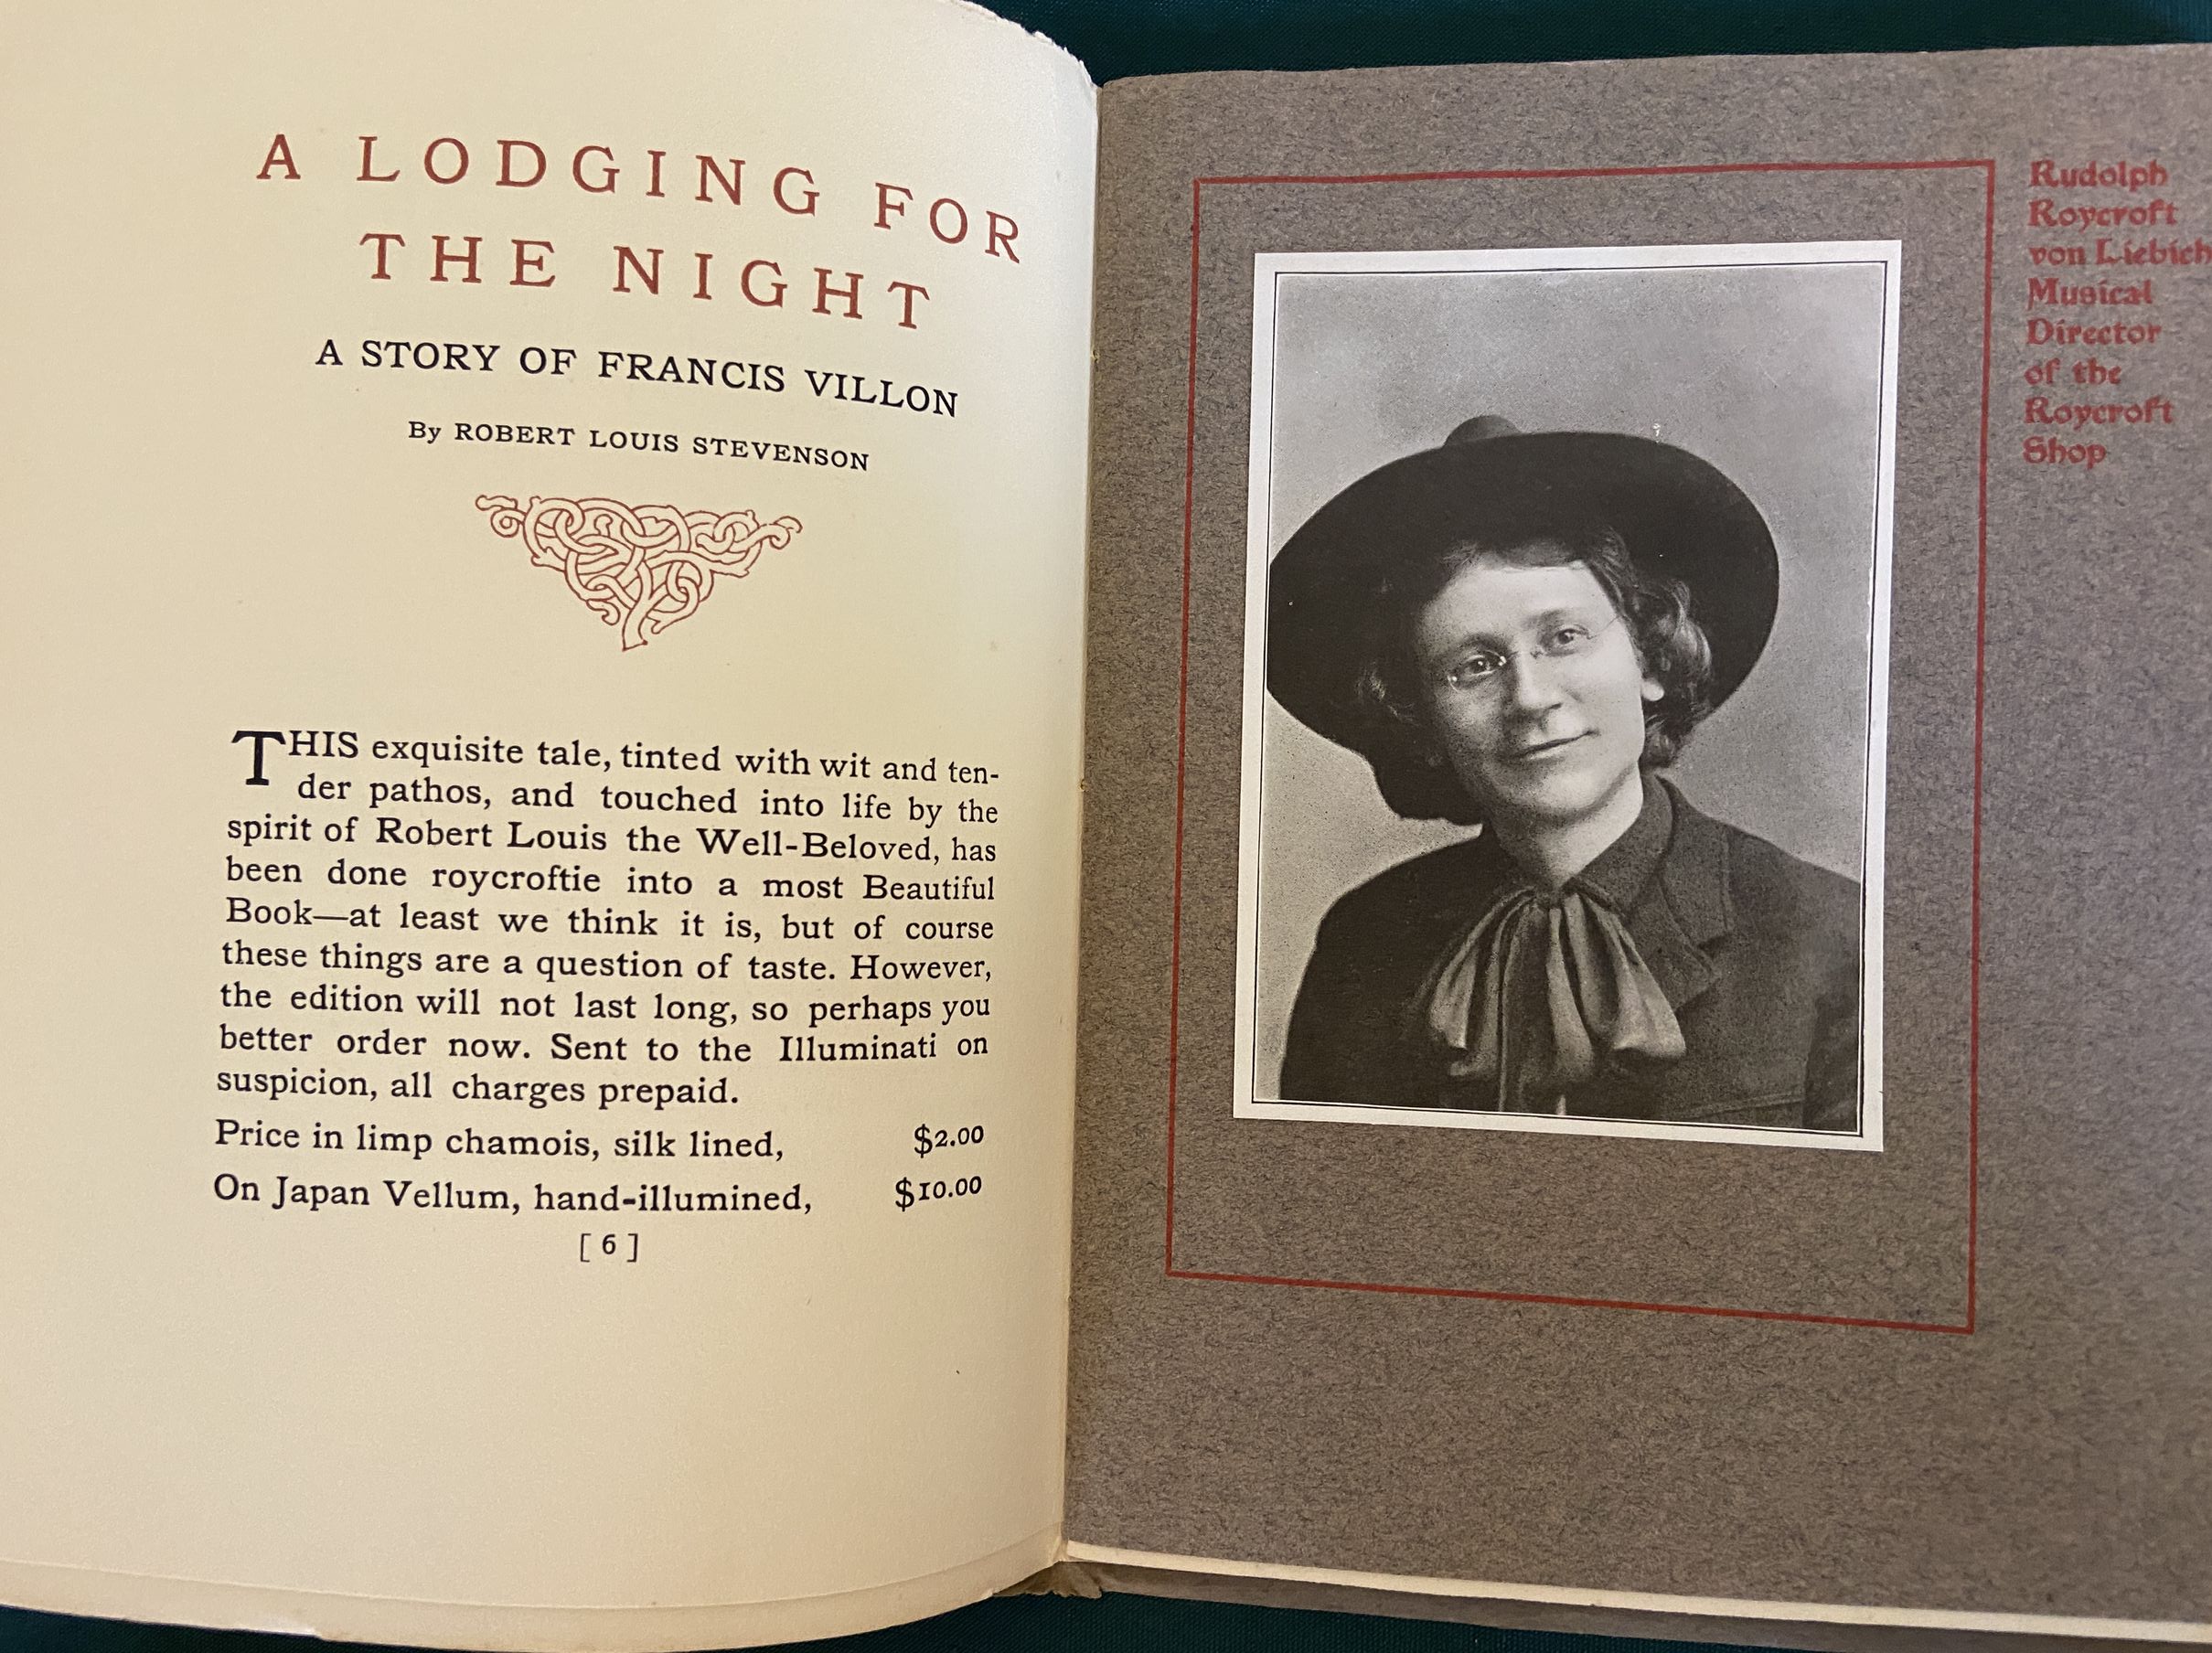 A LODGING FOR
THE NIGHT
A STORY OF FRANCIS VILLON
By ROBERT LOUIS STEVENSON
THIS exquisite tale, tinted with wit and ten-
der pathos, and touched into life by the
spirit of Robert Louis the Well-Beloved, has
been done roycroftie into a most Beautiful
Book—at least we think it is, but of course
these things are a question of taste. However,
the edition will not last long, so perhaps you
better order now. Sent to the Illuminati on
suspicion, all charges prepaid.
Price in limp chamois, silk lined, $2.00
On Japan Vellum, hand-illumined, $10.00
[ 6 ]
Rudolph
Roycroft
von Liebich
Musical
Director
of the
Roycroft
Shop